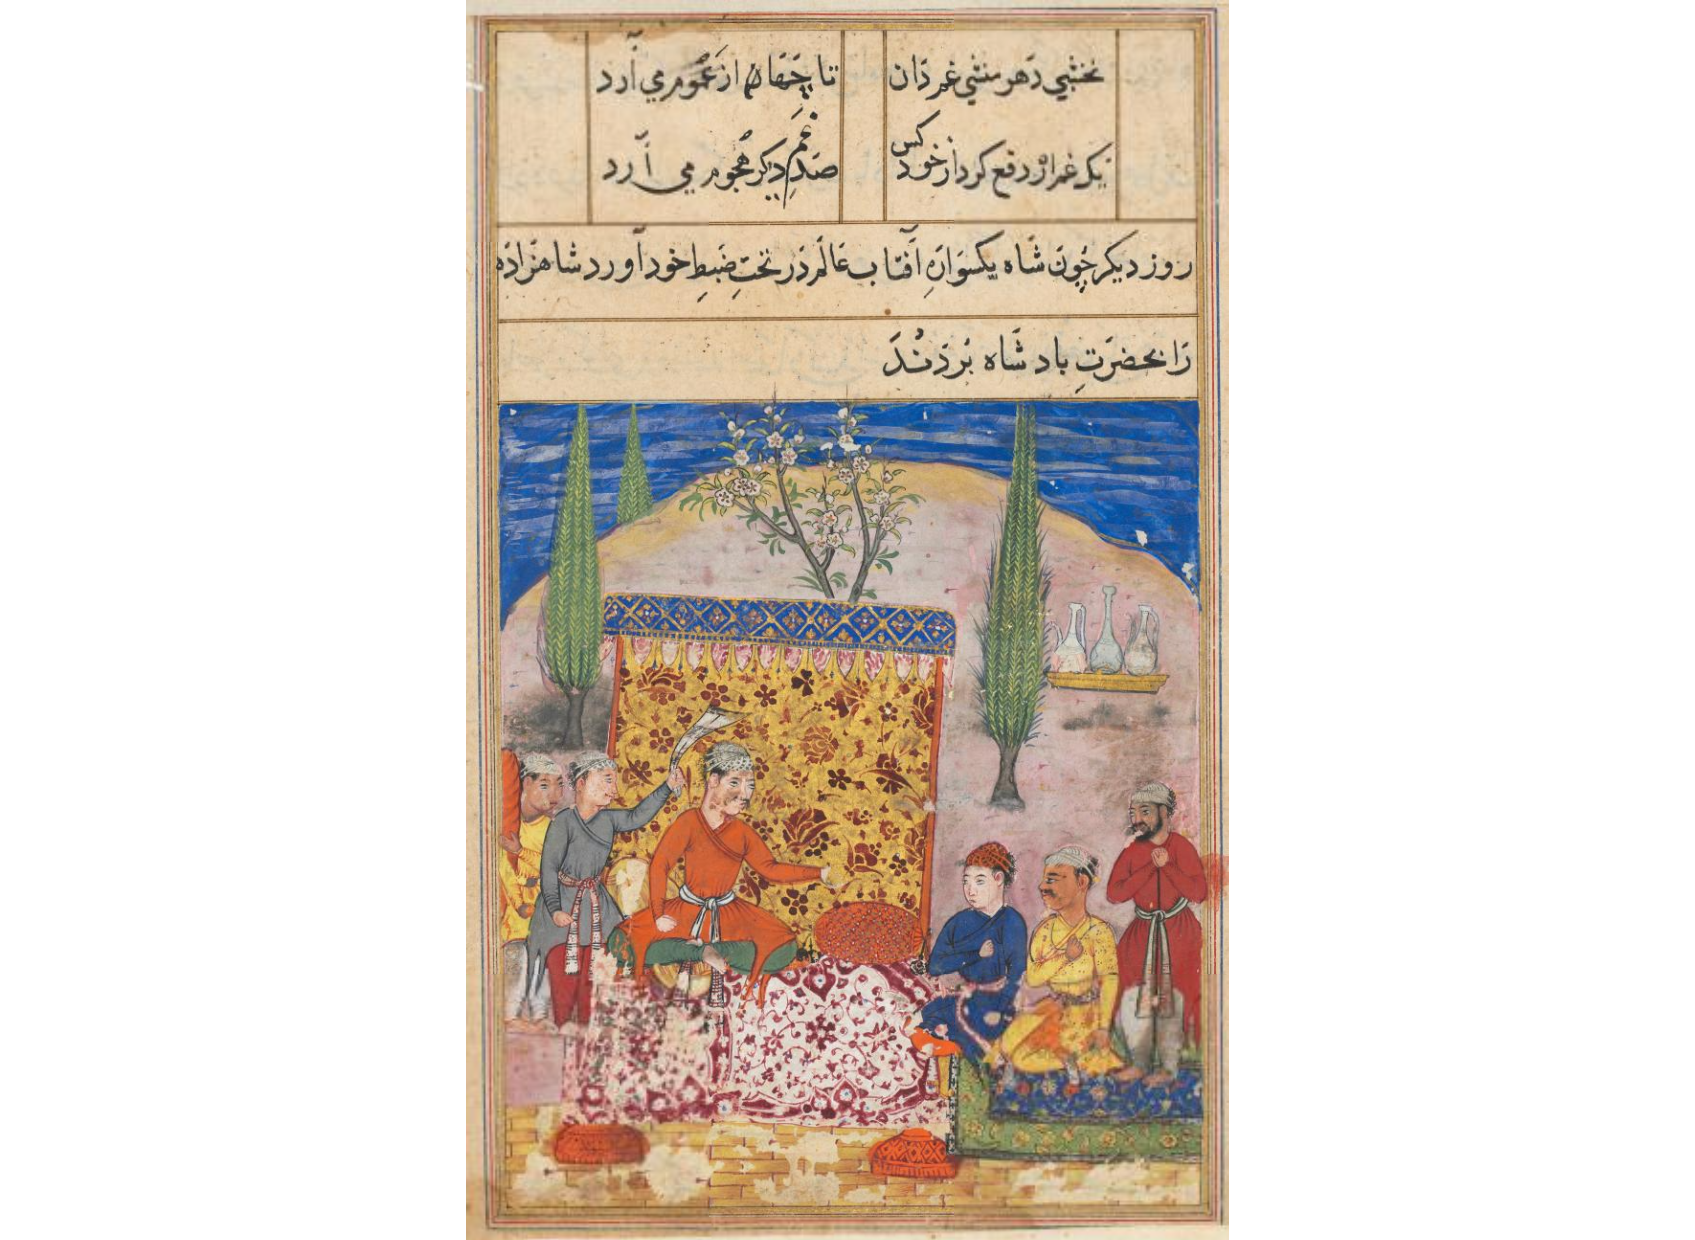 نخشبی دهر منشی غم دان تا چها از غموم می آرد
یک غم ار دفع کرد از خود کس صد غم دیگر هجوم می آرد
روز دیگر چون شاه یکسوارهٔ آفتاب عالم در تحت ضبط خود آورد شاهزاده
را بحضرت بادشاه بردند